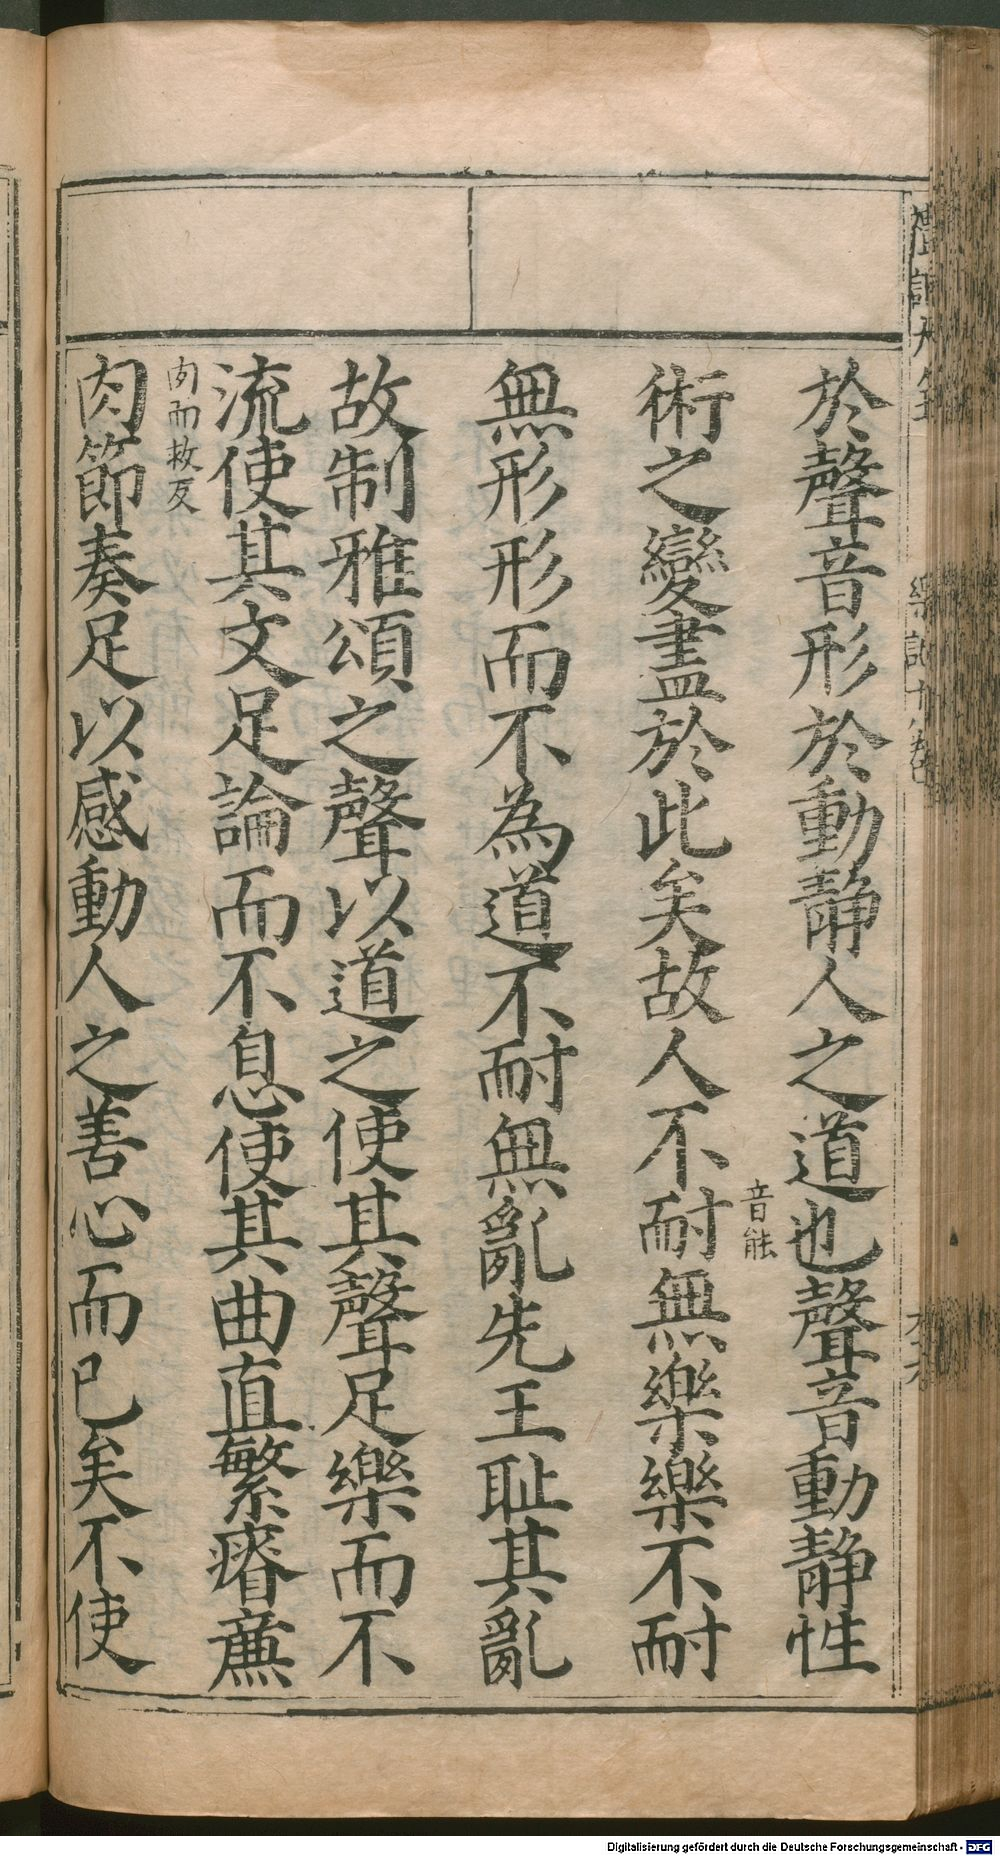 於聲音形於動靜人之道也聲音動靜性
術之變盡於此矣故人不耐無樂樂不耐
音能
無形形而不為道不耐無亂先王耻其亂
故制雅頌之聲以道之使其聲足樂而不
流使其文足論而不息使其曲直繁瘠亷
肉而救反
肉節奏足以感動人之善心而已矣不使
Digitalisierung gefördert durch die Deutsche Forschungsgemeinschaft - DFG